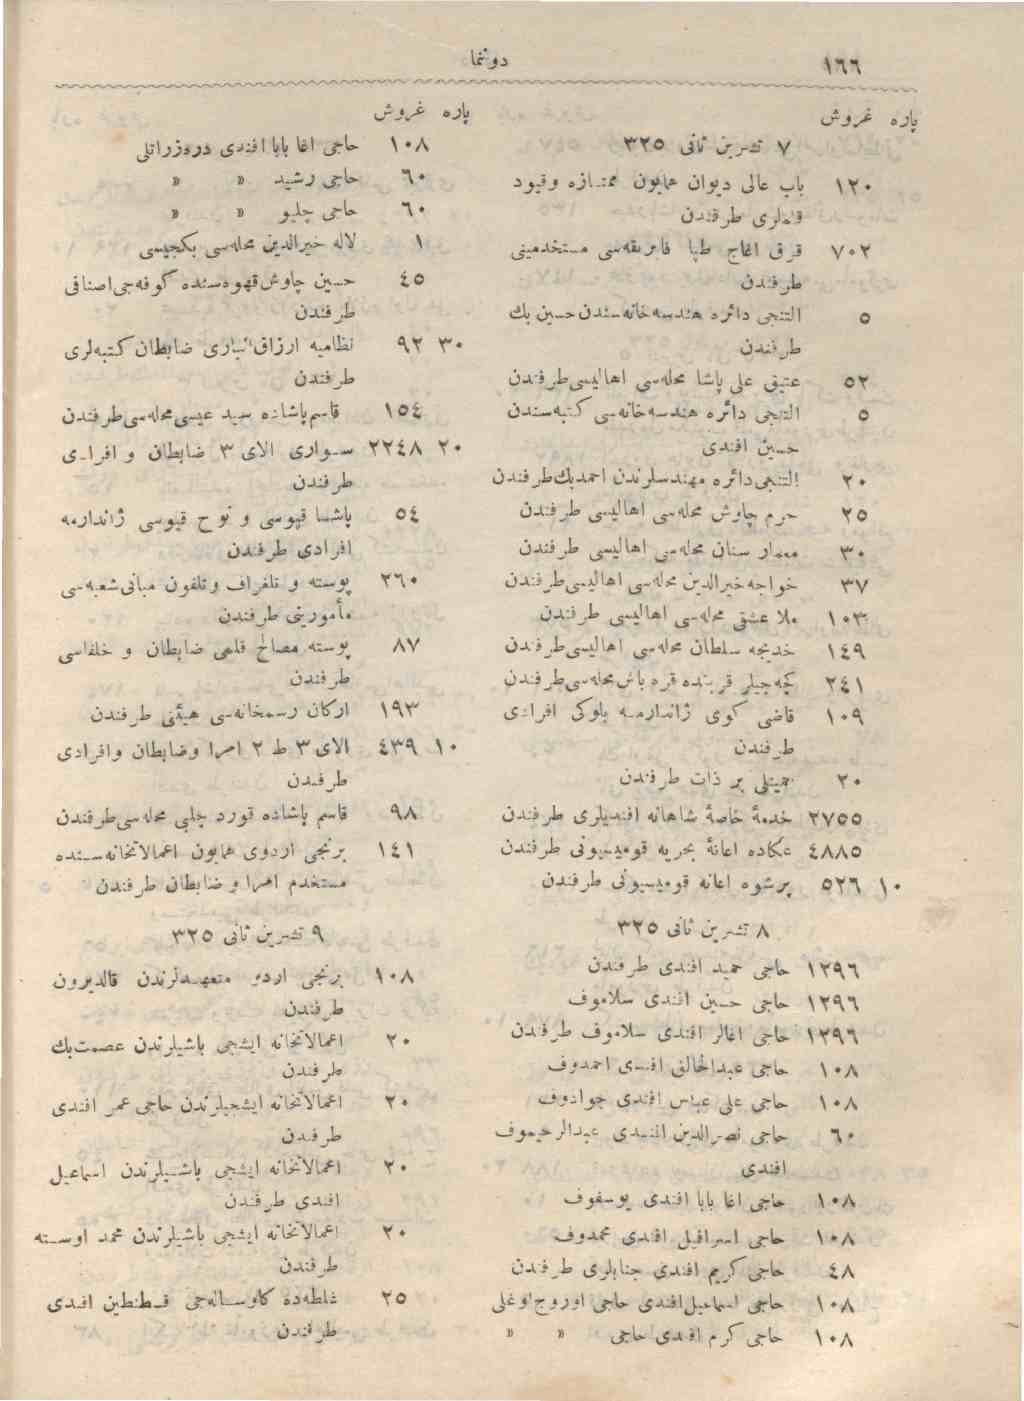 ١٦٦
دوننما
پاره غروش
٧ تشرين ثانی ٣٢٥
١٢٠ باب عالی ديوان همايون ممتازه وقيود
قلملری طرفندن
٧٠٢ قرق اغاج طپا فابريقه‌سی مستخدمينی
طرفندن
٥ التنجی دائره هندسه‌خانه‌سندن حسين بك
طرفندن
٥٢ عتيق علی پاشا محله‌سی اهاليسی طرفندن
٥ التنجی دائره هندسه‌خانه‌سی كتبه‌سندن
حسين افندی
٢٠ التنجی دائره مهندسلرندن احمدبك طرفندن
٢٥ خرم چاوش محله‌سی اهاليسی طرفندن
٣٠ معمار سنان محله‌سی اهاليسی طرفندن
٣٧ خواجه خيرالدين محله‌سی اهاليسی طرفندن
١٠٣ ملا عشقی محله‌سی اهاليسی طرفندن
١٤٩ خديجه سلطان محله‌سی اهاليسی طرفندن
٢٤١ كچه‌جيلر قربنده قره باش محله‌سی طرفندن
١٠٩ قاضی كوی ژاندارمه بلوكی افرادی
طرفندن
٢٠ حميتلی بر ذات طرفندن
٢٧٥٥ خدمهٔ خاصهٔ شاهانه افنديلری طرفندن
٤٨٨٥ عكاده اعانهٔ بحريه قوميسيونی طرفندن
١٠ ٥٢٦ پرشوه اعانه قوميسيونی طرفندن
٨ تشرين ثانی ٣٢٥
١٢٩٦ حاجی حميد افندی طرفندن
١٢٩٦ حاجی حسين افندی سلاموف
١٢٩٦ حاجی اغالر افندی سلاموف طرفندن
١٠٨ حاجی عبدالخالق افندی احمدوف
١٠٨ حاجی علی عباس افندی جوادوف
٦٠ حاجی نصرالدين افندی عبدالرحيموف
افندی
١٠٨ حاجی اغا بابا افندی يوسفوف
١٠٨ حاجی اسرافيل افندی محمدوف
٤٨ حاجی كريم افندی جنابلری طرفندن
١٠٨ حاجی اسماعيل افندی حاجی اوروج اوغلی
١٠٨ حاجی كرم افندی حاجی » »
پاره غروش
١٠٨ حاجی اغا بابا افندی دره‌زراتلی
٦٠ حاجی رشيد » »
٦٠ حاجی چلبو » »
١ لاله خيرالدين محله‌سی بكجيسی
٤٥ حسين چاوش قهوه‌سنده كوفه‌جی اصنافی
طرفندن
٣٠ ٩٢ نظاميه ارزاق انباری ضابطان كتبه‌لری
طرفندن
١٥٤ قاسم پاشاده سيد عيسی محله‌سی طرفندن
٢٠ ٢٢٤٨ سواری الای ٣ ضابطان و افرادی
طرفندن
٥٤ پاشا قپوسی و نوح قپوسی ژاندارمه
افرادی طرفندن
٢٦٠ پوسته و تلغراف وتلفون مبانی شعبه‌سی
مأمورينی طرفندن
٨٧ پوسته مصالح قلمی ضابطان و خلفاسی
طرفندن
١٩٣ اركان رسمخانه‌سی هيئتی طرفندن
١٠ ٤٣٩ الای ٣ ط ٢ امرا وضابطان وافرادی
طرفندن
٩٨ قاسم پاشاده قورد چلبی محله‌سی طرفندن
١٤١ برنجی اردوی همايون اعمالاتخانه‌سنده
مستخدم امرا و ضابطان طرفندن
٩ تشرين ثانی ٣٢٥
١٠٨ برنجی اردو متعهدلرندن قالديرون
طرفندن
٢٠ اعمالاتخانه ايشجی باشيلرندن عصمت بك
طرفندن
٢٠ اعمالاتخانه ايشجيلرندن حاجی عمر افندی
طرفندن
٢٠ اعمالاتخانه ايشجی باشيلرندن اسماعيل
افندی طرفندن
٢٠ اعمالاتخانه ايشجی باشيلرندن محمد اوسته
طرفندن
٢٥ غلطه‌ده قسطنطين افندی
طرفندن